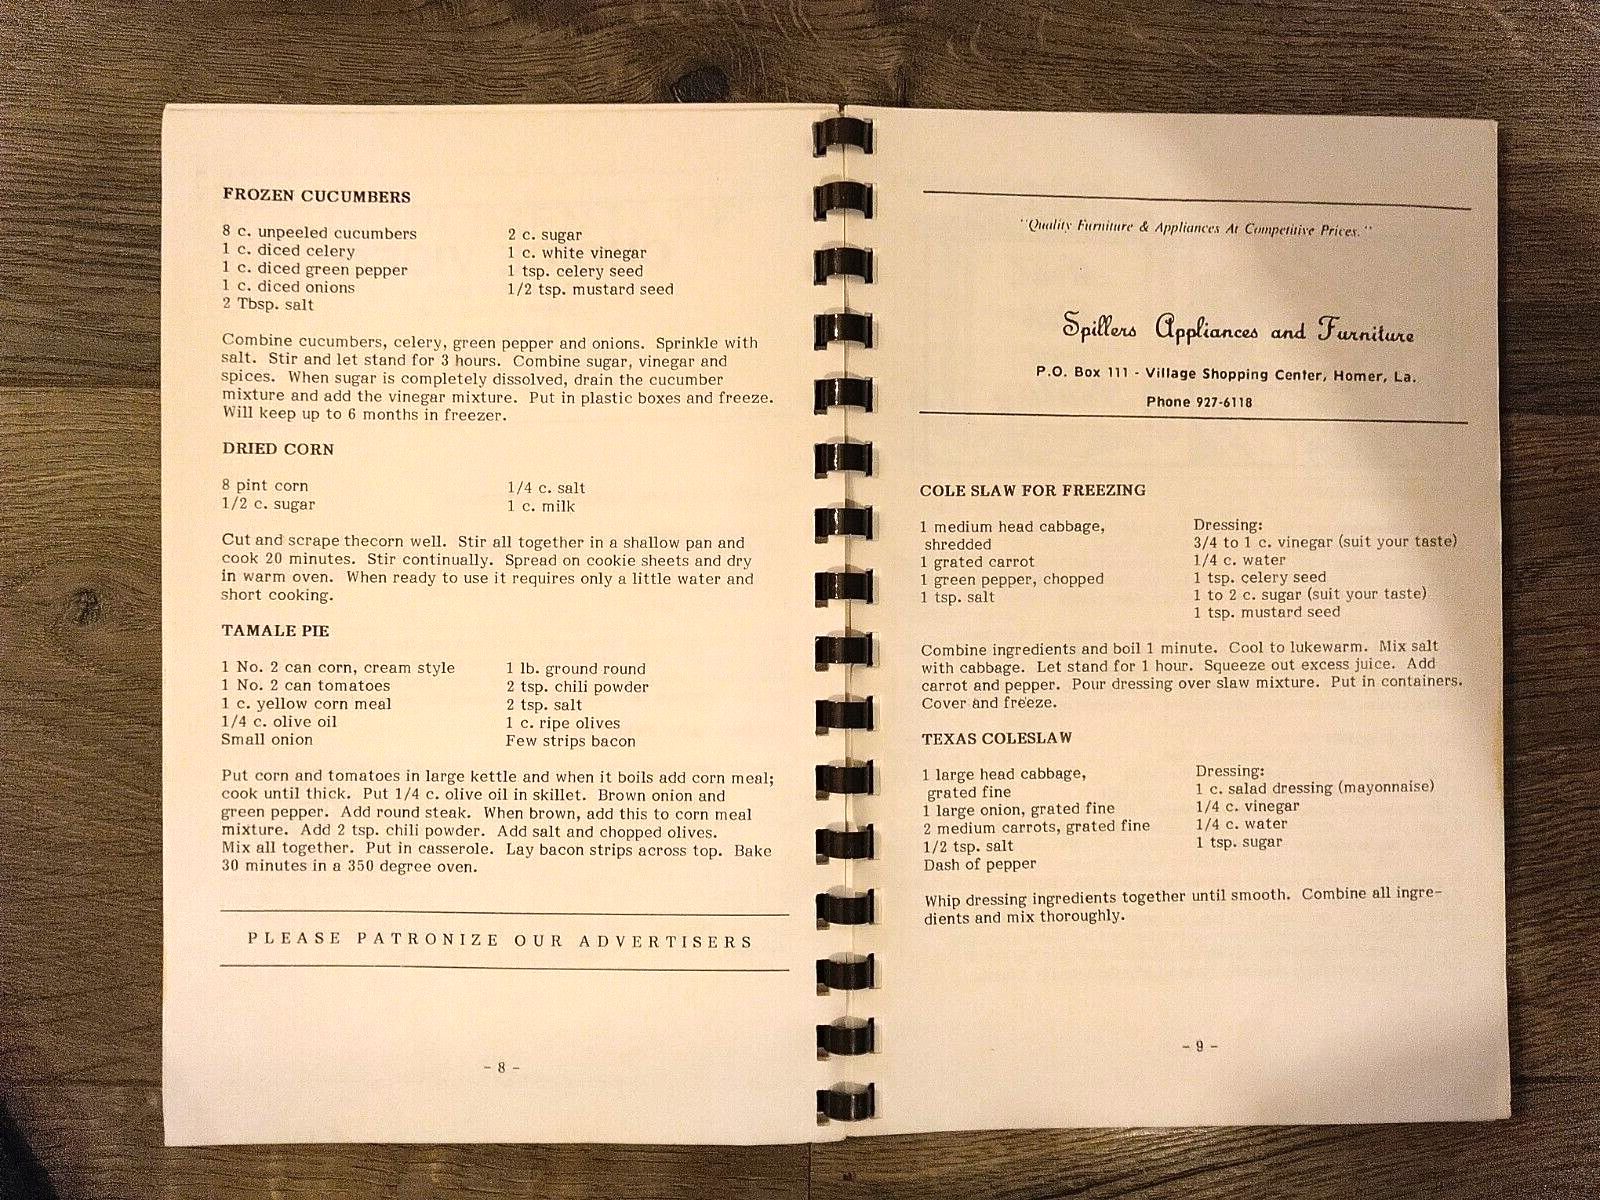 FROZEN CUCUMBERS
8 c. unpeeled cucumbers
1 c. diced celery
1 c. diced green pepper
1 c. diced onions
2 Tbsp. salt
2 c. sugar
1 c. white vinegar
1 tsp. celery seed
1/2 tsp. mustard seed
Combine cucumbers, celery, green pepper and onions. Sprinkle with
salt. Stir and let stand for 3 hours. Combine sugar, vinegar and
spices. When sugar is completely dissolved, drain the cucumber
mixture and add the vinegar mixture. Put in plastic boxes and freeze.
Will keep up to 6 months in freezer.
DRIED CORN
8 pint corn
1/2 c. sugar
1/4 c. salt
1 c. milk
Cut and scrape thecorn well. Stir all together in a shallow pan and
cook 20 minutes. Stir continually. Spread on cookie sheets and dry
in warm oven. When ready to use it requires only a little water and
short cooking.
TAMALE PIE
1 No. 2 can corn, cream style
1 No. 2 can tomatoes
1 c. yellow corn meal
1/4 c. olive oil
Small onion
1 lb. ground round
2 tsp. chili powder
2 tsp. salt
1 c. ripe olives
Few strips bacon
Put corn and tomatoes in large kettle and when it boils add corn meal;
cook until thick. Put 1/4 c. olive oil in skillet. Brown onion and
green pepper. Add round steak. When brown, add this to corn meal
mixture. Add 2 tsp. chili powder. Add salt and chopped olives.
Mix all together. Put in casserole. Lay bacon strips across top. Bake
30 minutes in a 350 degree oven.
PLEASE PATRONIZE OUR ADVERTISERS
- 8 -
"Quality Furniture & Appliances At Competitive Prices."
Spillers Appliances and Furniture
P.O. Box 111 - Village Shopping Center, Homer, La.
Phone 927-6118
COLE SLAW FOR FREEZING
1 medium head cabbage,
shredded
1 grated carrot
1 green pepper, chopped
1 tsp. salt
Dressing:
3/4 to 1 c. vinegar (suit your taste)
1/4 c. water
1 tsp. celery seed
1 to 2 c. sugar (suit your taste)
1 tsp. mustard seed
Combine ingredients and boil 1 minute. Cool to lukewarm. Mix salt
with cabbage. Let stand for 1 hour. Squeeze out excess juice. Add
carrot and pepper. Pour dressing over slaw mixture. Put in containers.
Cover and freeze.
TEXAS COLESLAW
1 large head cabbage,
grated fine
1 large onion, grated fine
2 medium carrots, grated fine
1/2 tsp. salt
Dash of pepper
Dressing:
1 c. salad dressing (mayonnaise)
1/4 c. vinegar
1/4 c. water
1 tsp. sugar
Whip dressing ingredients together until smooth. Combine all ingre-
dients and mix thoroughly.
- 9 -